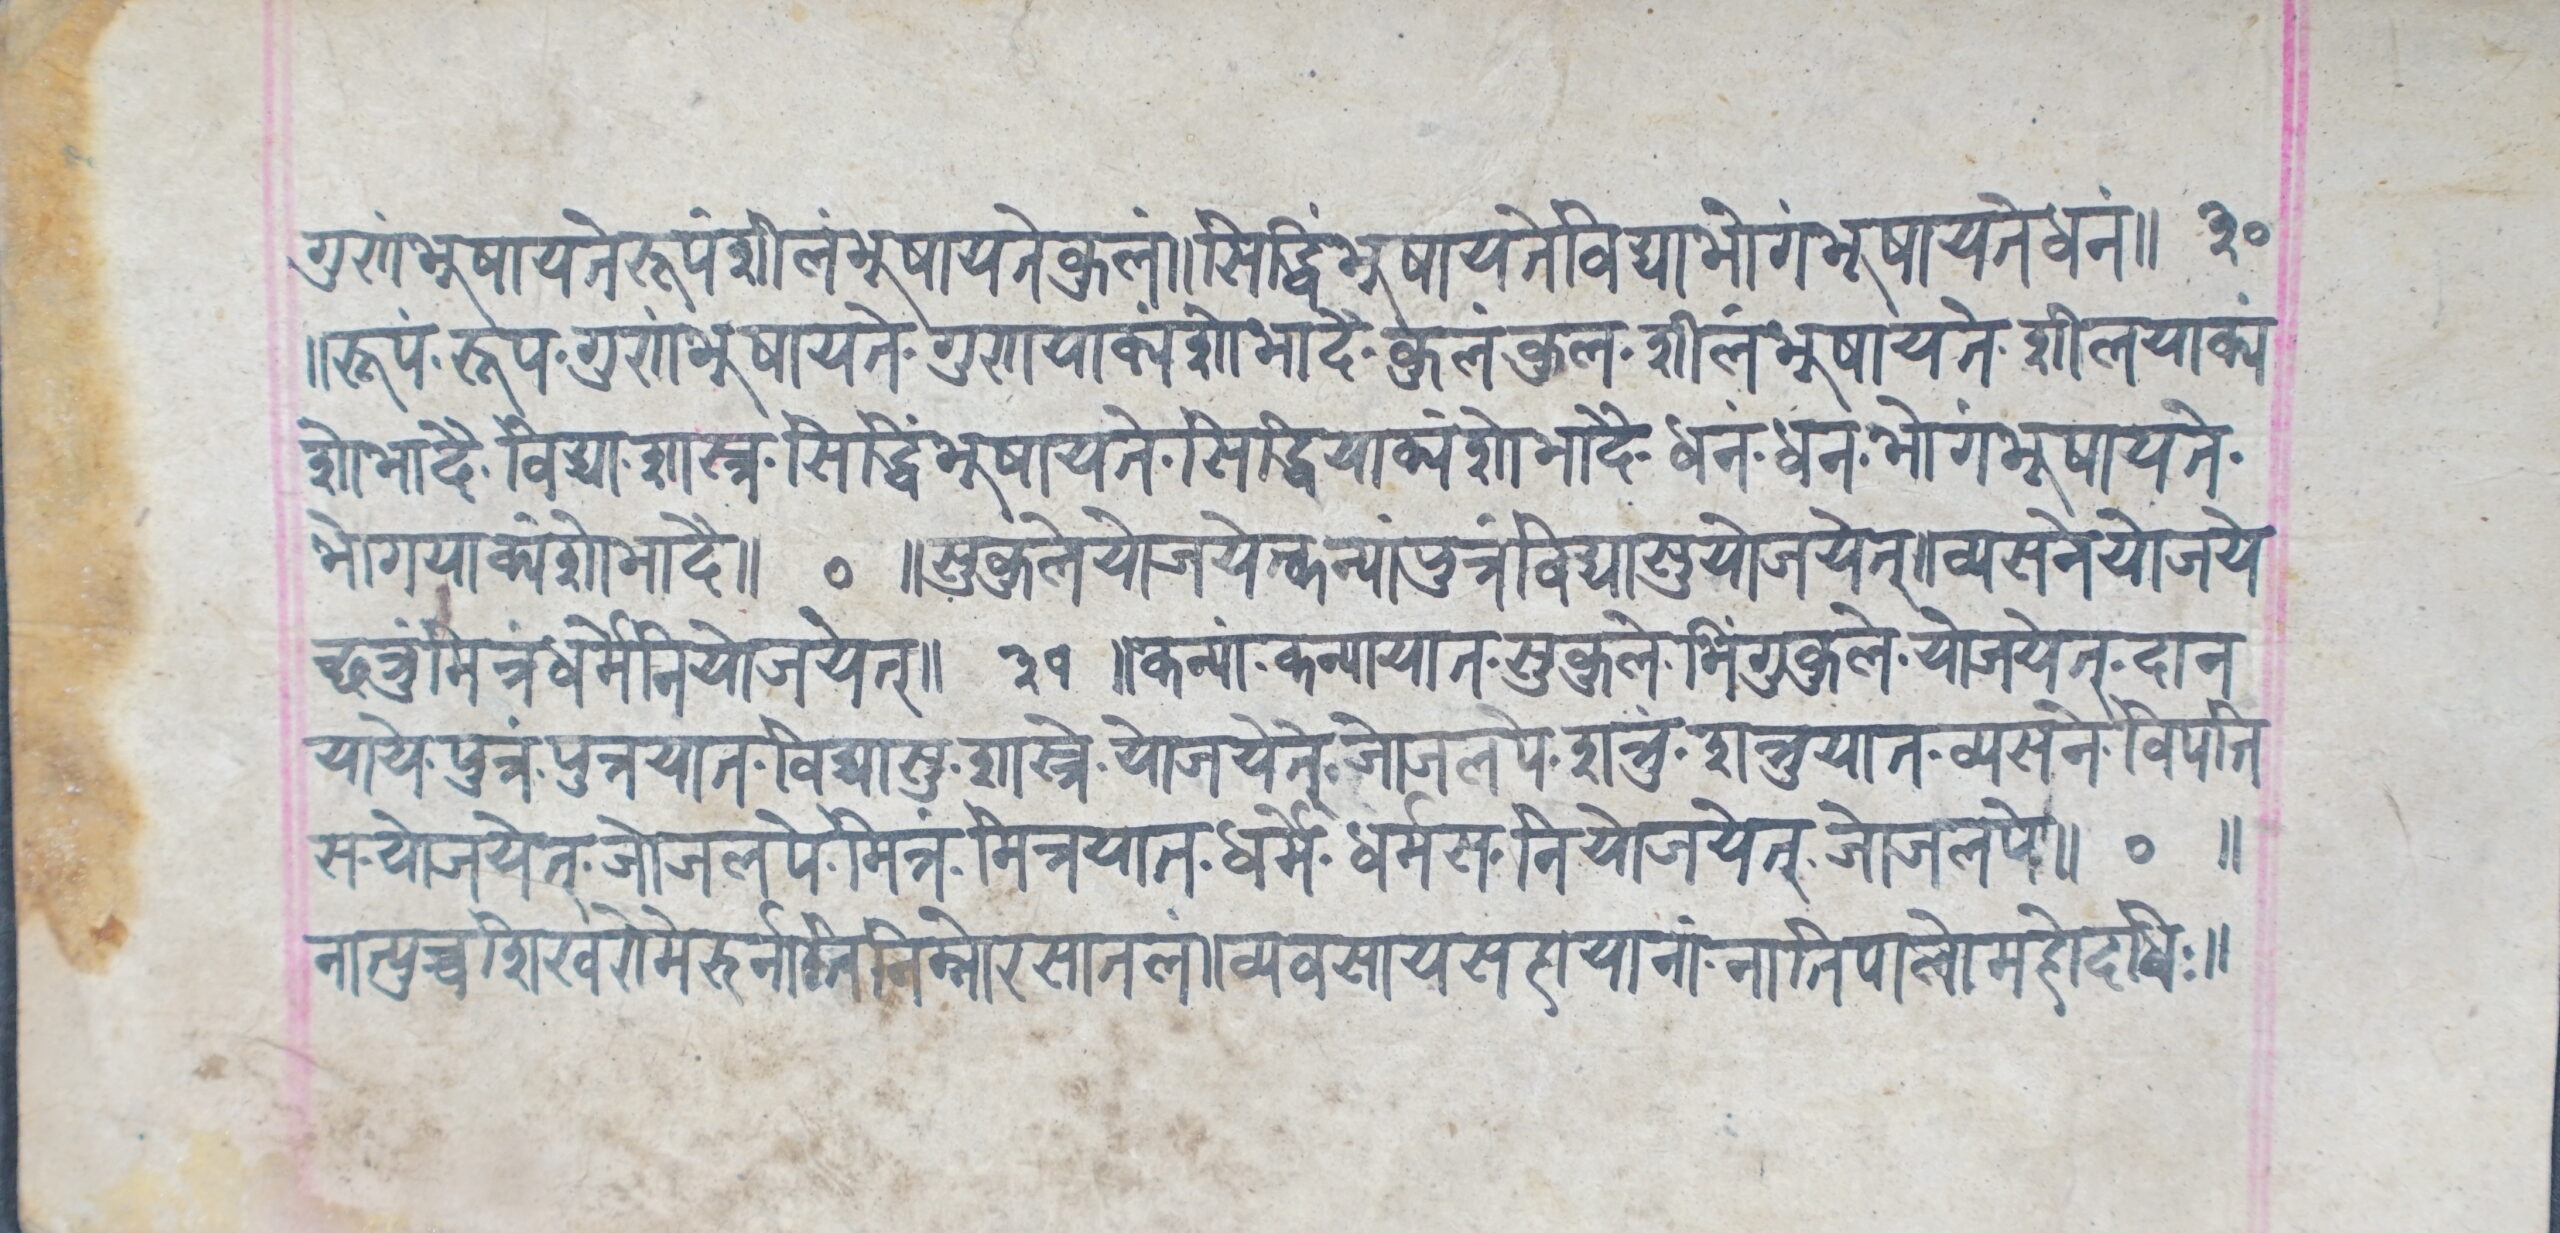 गुणंभूषायतेरूपंशीलंभूषायतेकुलं॥सिद्धिंभूषायतेविद्याभोगंभूषायतेधनं॥ ३०
॥रूपं·रूप·गुणंभूषायते·गुणयाक्यंशोभादै·कुलं·कुल·शीलंभूषायते·शीलयाक्यं
शोभादै·विद्या·शास्त्र·सिद्धिंभूषायते·सिद्धियाक्यंशोभादै·धनं·धन·भोगंभूषायते·
भोगयाक्यंशोभादै॥ ० ॥सुकुलेयोजयेत्कन्यांपुत्रंविद्यासुयोजयेत्॥व्यसनेयोजये
च्छत्रुंमित्रंधर्मेनियोजयेत्॥ ३१ ॥कन्यां·कन्यायात·सुकुले·भिंगुकुले·योजयेत्·दान
याये·पुत्रं·पुत्रयात·विद्यासु·शास्त्रे·योजयेत्·जोजलपे·शत्रुं·शत्रुयात·व्यसने·विपति
स·योजयेत्·जोजलपे·मित्रं·मित्रयात·धर्मे·धर्मस·नियोजयेत्·जोजलपे॥ ० ॥
नात्युच्चशिखरोमेरुर्नातिनिम्नोरसातलं॥व्यवसायसहायानां·नातिपालोमहोदधिः॥